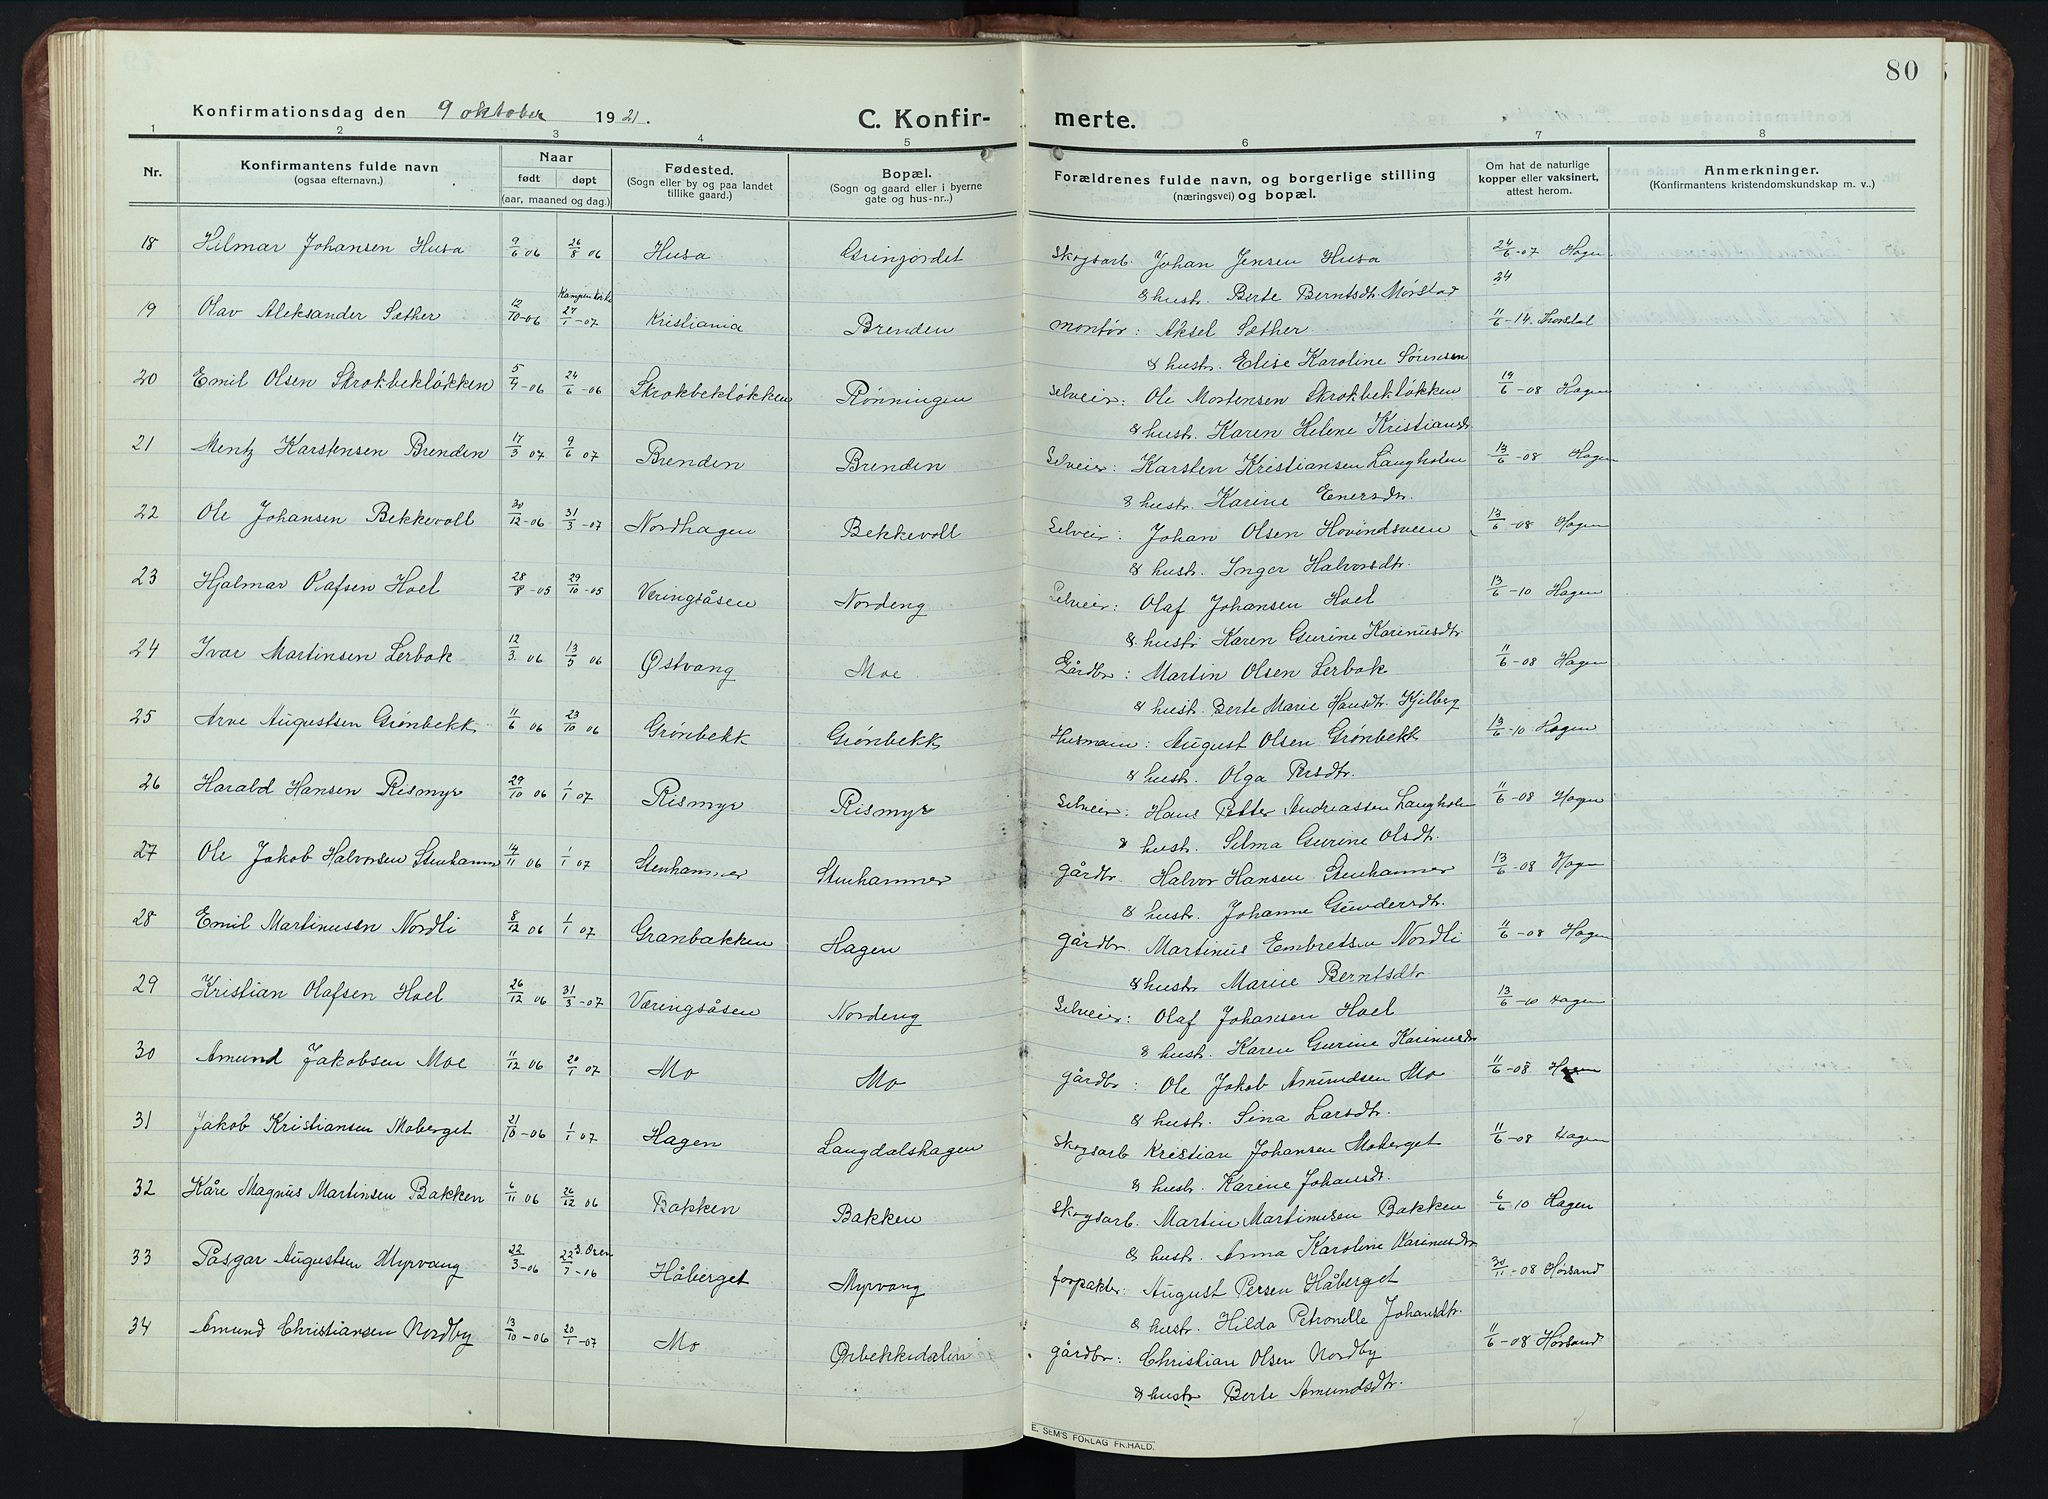 80
Konfirmationsdag den 9 oktober 1921.
C. Konfir-
merte.
1 2 3 4 5 6 7 8
Nr.
Konfirmantens fulde navn
(ogsaa efternavn.)
Naar
født døpt
(aar, maaned og dag.)
Fødested.
(Sogn eller by og paa landet
tillike gaard.)
Bopæl.
(Sogn og gaard eller i byerne
gate og hus-nr..)
Forældrenes fulde navn, og borgerlige stilling
(næringsvei) og bopæl.
Om hat de naturlige
kopper eller vaksinert,
attest herom.
Anmerkninger.
(Konfirmantens kristendomskundskap m. v..)
18 Hilmar Johansen Husa 9/6 06 26/8 06 Husa Grinjordet Skogsarb. Johan Jensen Husa 24/6-07 Hagen
& hustr. Berte Berntsdtr. Mørstad 24
Kampen kirke
19 Olav Aleksander Sæther 12/10-06 27/1-07 Kristiania Brenden montør: Aksel Sæther 11/6-14.
& hustr. Elise Karoline Sørensen
20 Emil Olsen Strokbekløkken 5/4-06 24/6-06 Strokbekløkken Rønningen selveier: Ole Mortensen Strokbekløkken 19/6-08 Hagen
& hustr. Karen Helene Kristiansdr.
21 Mentz Karstensen Brenden 17/3 07 9/6 07 Brenden Brenden Selveier: Karsten Kristiansen Langholen 13/6-08 Hagen
& hustr. Karine Enersdtr.
22 Ole Johansen Bekkevoll 30/12-06 31/3-07 Nordhagen Bekkevoll Selveier: Johan Olsen Hovindsveen 13/6-08 Hagen
& hustr. Inger Halvorsdtr.
23 Hjalmar Olafsen Hoel 28/8-05 29/10-05 Væringsåsen Nordeng Selveier: Olaf Johansen Hoel 13/6-10 Hagen
& hustr. Karen Gurine Karinusdtr.
24 Ivar Martinsen Lerbak 12/3. 06 13/5 06 Østvang Moe Gårdbr: Martin Olsen Lerbak 11/6-08 Hagen
& hustr. Berte Marie Hansdtr. Kjelberg
25 Arve Augustsen Grønbekk 11/6 06 23/10 06 Grønbekk Grønbekk Husmann: August Olsen Grønbekk 13/6-10 Hagen
& hustr. Olga Persdtr.
26 Harald Hansen Rismyr 29/10 06 1/1 07 Rismyr Rismyr Selveier: Hans Petter Andreassen Langholen 11/6-08 Hagen
& hustr. Selma Gurine Olsdtr.
27 Ole Jakob Halvorsen Stenhammer 14/11 06 1/1 07 Stenhammer Stenhammer gårdbr. Halvor Hansen Stenhammer 13/6-08 Hagen
& hustr. Johanne Gundersdtr.
28 Emil Martinussn Nordli 8/12 06 1/1 07 Granbakken Hagen gårdbr. Martinus Embretsen Nordli 11/6-08 Hagen
& hustr. Marie Berntsdtr.
29 Kristian Olafsen Hoel 26/12 06 31/3-07 Væringsåsen Nordeng Selveier: Olaf Johansen Hoel 13/6-10 Hagen
& hustr. Karen Gurine Karinusdtr
30 Amund Jakobsen Moe 11/12 06 20/1 07 Mo Mo gårdbr: Ole Jakob Amundsen Mo 11/6-08 Hagen
& hustr. Sina Larsdtr.
31 Jakob Kristiansen Moberget 21/10-06 1/1 07 Hagen Langdalshagen Skogsarb Kristian Johansen Moberget 11/6-08 Hagen
& hustr. Karine Johansdr.
32 Kåre Magnus Martinsen Bakken 6/11 06 26/12 06 Bakken Bakken Skogsarb. Martin Martinusen Bakken 6/6 10 Hagen
& hustr. Anna Karoline Karinusdtr
33 Påsgar Augustsen Myrvang 22/3-06 22/7-06 Håberget Myrvang forpakter: August Persen Håberget 30/11-08 Hørsand
& hustr. Hilda Petronelle Johansdtr.
34 Amund Christiansen Nordby 13/10-06 20/1-07 Mo Ørbekkedalen gårdbr: Christian Olsen Nordby 11/6-08 Hørsand
& hustr Berte Amundsdtr.
E. SEM'S FORLAG FR.HALD.